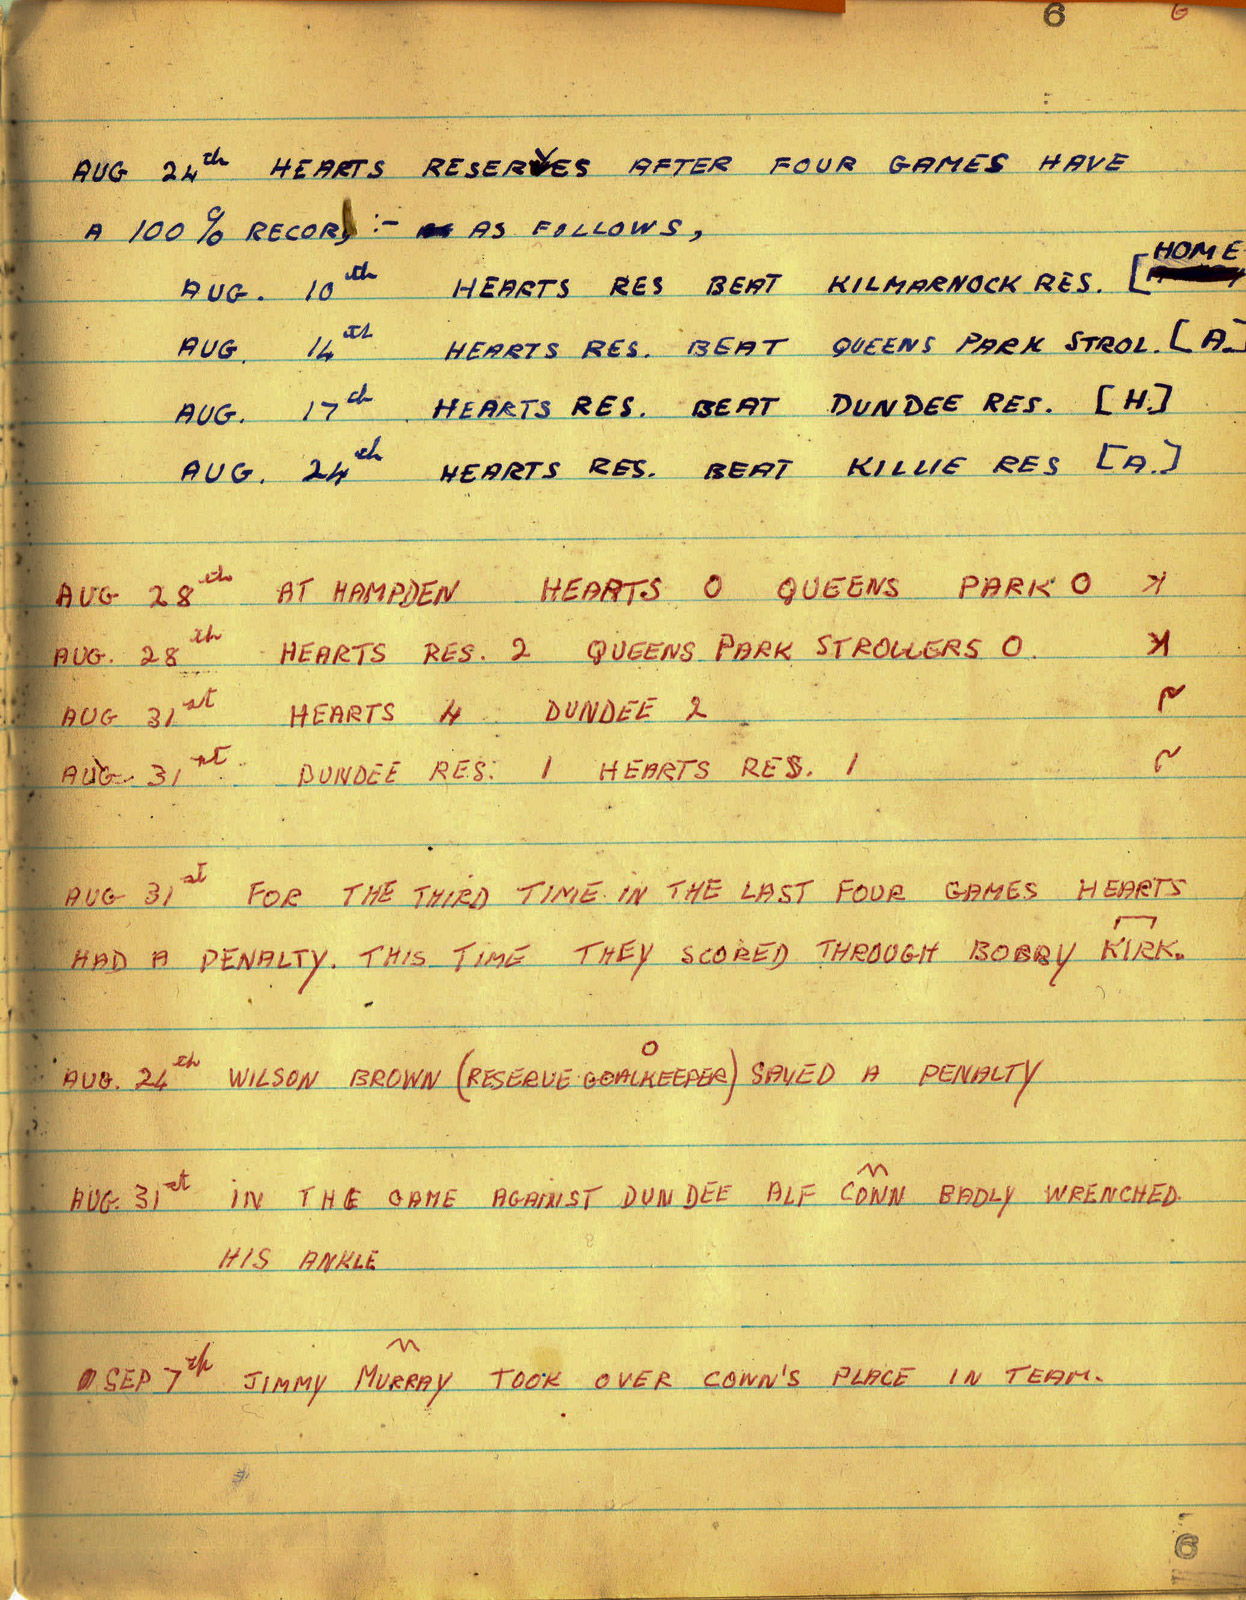 6 6
AUG 24th HEARTS RESERVES AFTER FOUR GAMES HAVE
A 100% RECORD :- AS FOLLOWS,
HOME
AUG. 10th HEARTS RES BEAT KILMARNOCK RES. [
AUG. 14th HEARTS RES. BEAT QUEENS PARK STROL. [A.]
AUG. 17th HEARTS RES. BEAT DUNDEE RES. [H.]
AUG. 24th HEARTS RES. BEAT KILLIE RES [A.]
AUG 28th AT HAMPDEN HEARTS 0 QUEENS PARK 0
AUG. 28th HEARTS RES. 2 QUEENS PARK STROLLERS 0.
AUG 31st HEARTS 4 DUNDEE 2
AUG. 31st DUNDEE RES. 1 HEARTS RES. 1
AUG 31st FOR THE THIRD TIME IN THE LAST FOUR GAMES HEARTS
HAD A PENALTY. THIS TIME THEY SCORED THROUGH BOBBY KIRK.
AUG. 24th WILSON BROWN (RESERVE GOALKEEPER) SAVED A PENALTY
AUG. 31st IN THE GAME AGAINST DUNDEE ALF CONN BADLY WRENCHED
HIS ANKLE
SEP 7th JIMMY MURRAY TOOK OVER CONN'S PLACE IN TEAM.
6